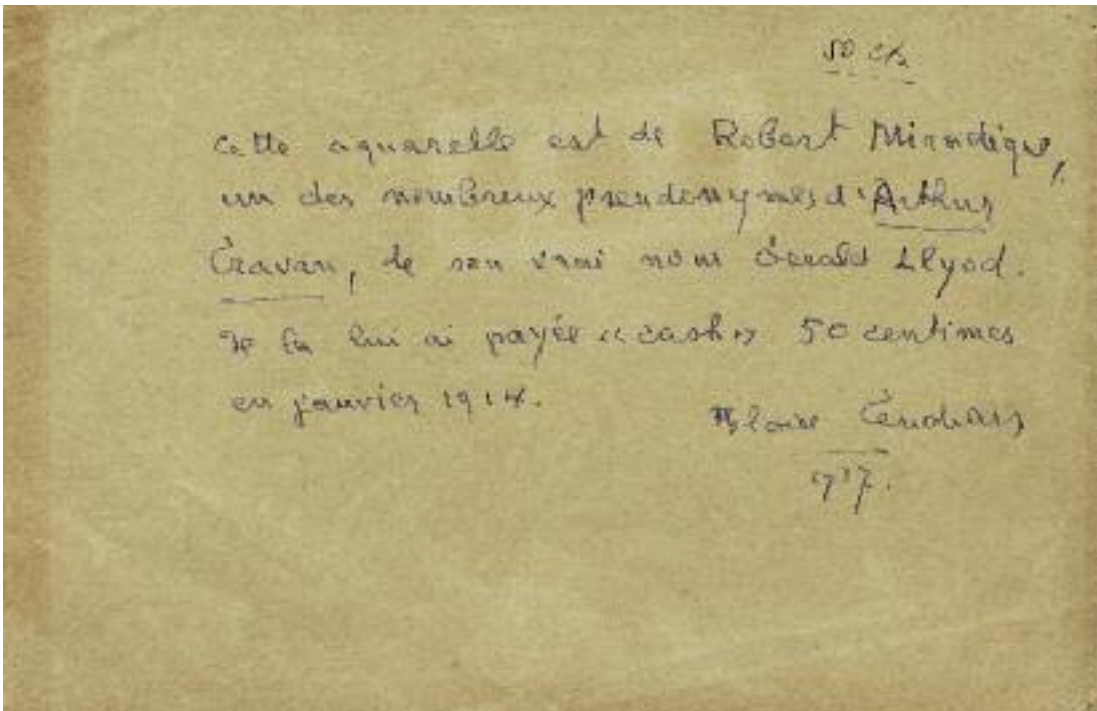 50 cts
Cette aquarelle est de Robert Miradique,
un des nombreux pseudonymes d'Arthur
Cravan, de son vrai nom Gérald Llyod.
Je la lui ai payée « cash » 50 centimes
en janvier 1914.
Blaise Cendrars